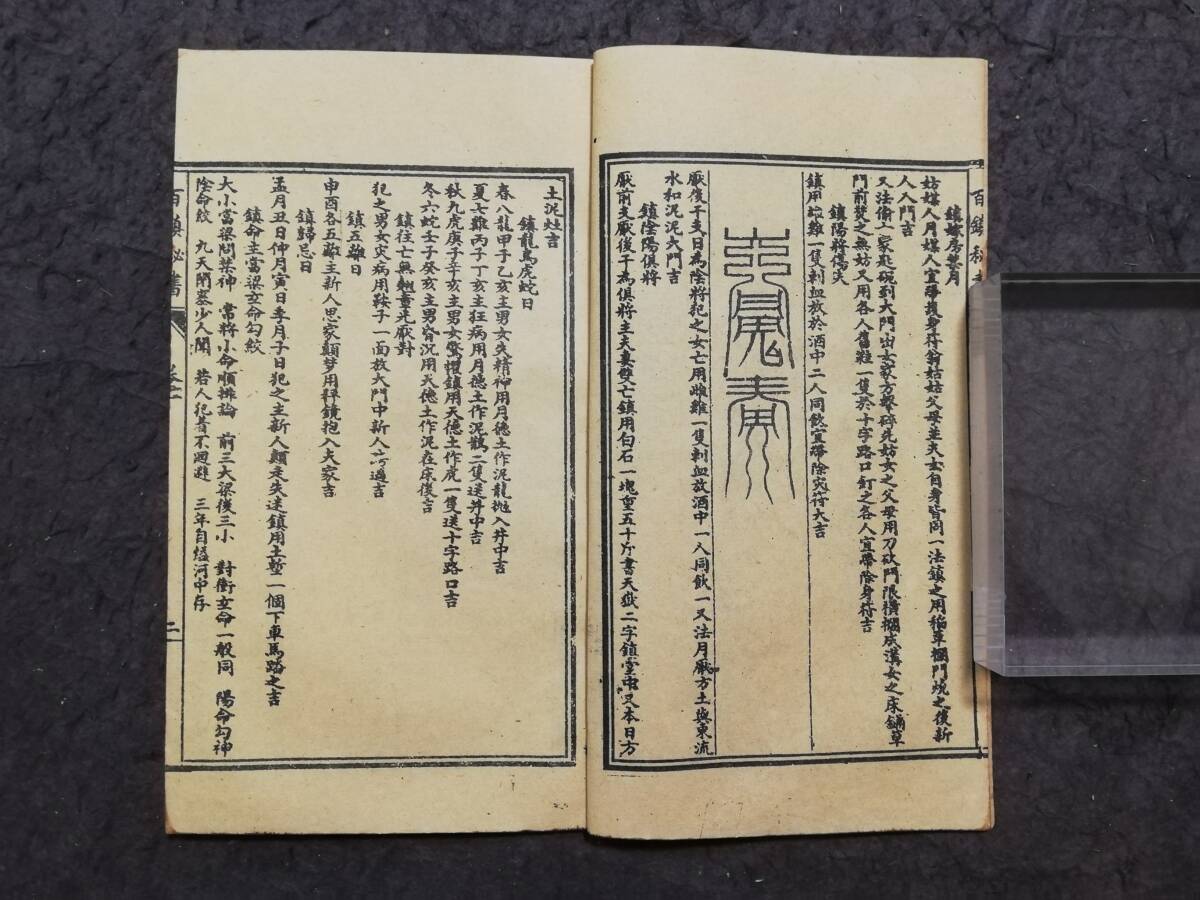 百鎮秘書
鎮嫁房禁月
姑嫜人月嫜人宜帶護身符翁姑姑父母並夫主自身皆同一法鎮之用稻草攔門燒之後新
人入門吉
又法偷人家匙碗到大門出女家方擊碎先姑女之父母用刀砍門限橫攔成溝女之床鋪草
門前焚之無姑又用各人舊鞋一隻於十字路口釘之各人宜帶除身符吉
鎮陽將傷夫
鎮用雄雞一隻刺血放於酒中二人同飲宜帶除災符大吉
厭後干支日為陰將犯之女亡用雌雞一隻刺血放酒中一人同飲一又法月厭方土與東流
水和泥泥大門吉
鎮陰陽俱將
厭前支厭後干為俱將主夫妻雙亡鎮用白石一塊重五十斤書天嶽二字鎮堂中又本日方
土泥灶吉
鎮龍馬虎蛇日
春八龍甲子乙亥主男女失精神用月德土作泥龍拋入井中吉
夏七雞丙子丁亥主狂病用月德土作泥鵲二隻送井中吉
秋九虎庚子辛亥主男女驚懼鎮用天德土作虎一隻送十字路口吉
冬六蛇壬子癸亥主男昏沉用天德土作泥在床後吉
鎮往亡無翹章光厭對
犯之男女災病用鞍子一面放大門中新人跨過吉
鎮五離日
申酉各五離主新人思家顛梦用銲鏡抱入夫家吉
鎮歸忌日
孟月丑日仲月寅日季月子日犯之主新人顛未失迷鎮用土墼一個下車馬踏之吉
鎮命主當梁女命勾絞
大小當梁問禁神 常將小命順排論 前三大梁後三小 對衝女命一般同 陽命勾神
陰命絞 九天閉塞少人聞 若人犯著不迴避 三年自縊河中存
百鎮秘書
二